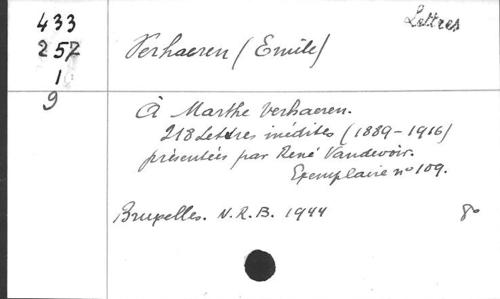 433
257
1
9
Lettres
Verhaeren (Emile)
À Marthe Verhaeren.
218 Lettres inédites (1889-1916)
présentées par René Vandevoir.
Exemplaire n° 109.
Bruxelles. N.R.B. 1944 8°